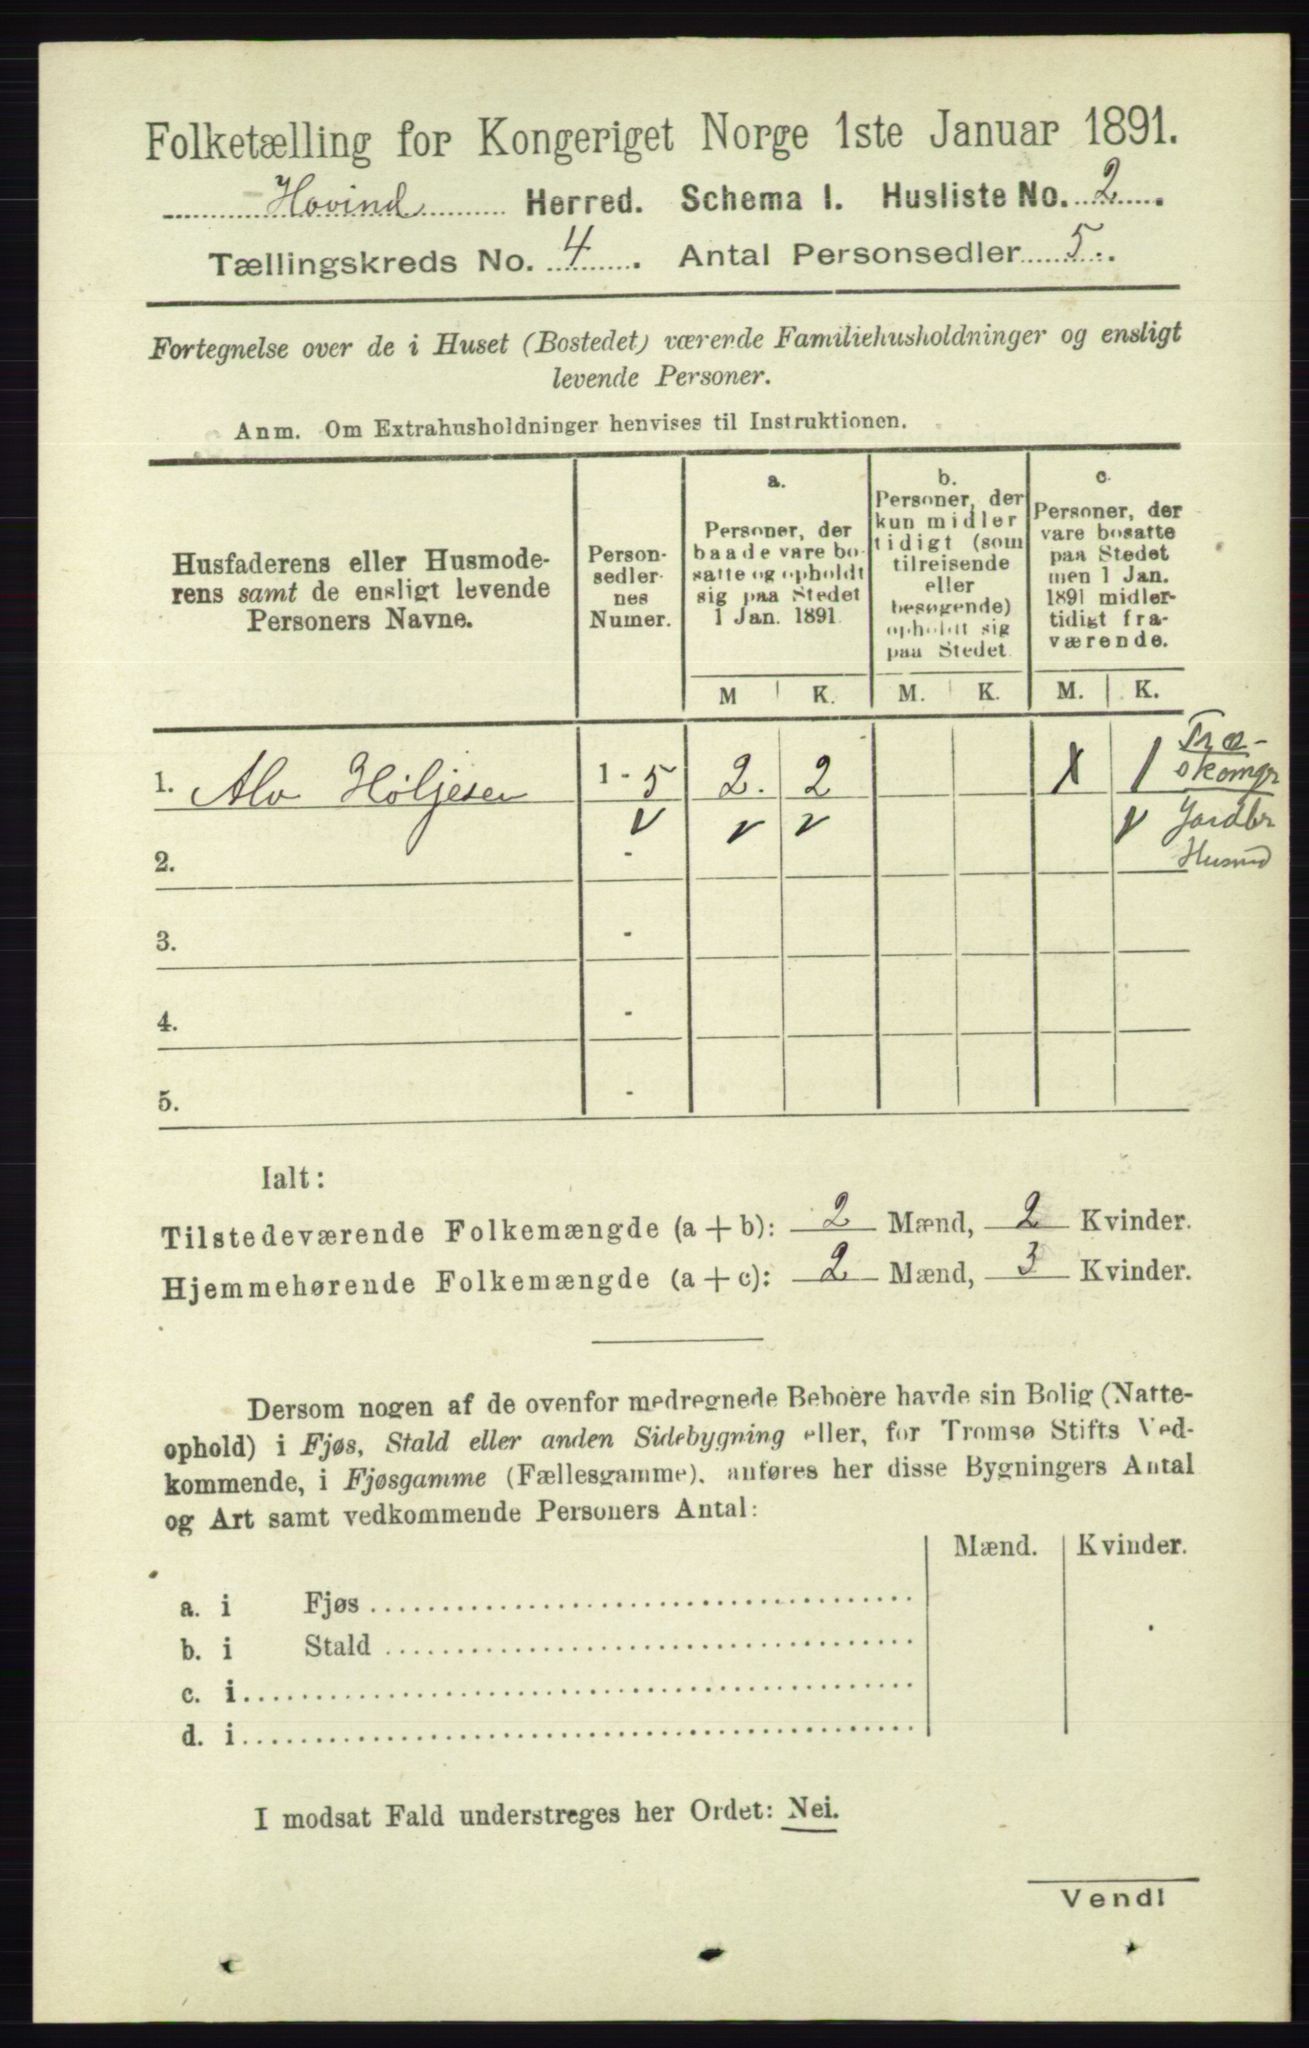 Folketælling for Kongeriget Norge 1ste Januar 1891.
Hovind Herred. Schema I. Husliste No. 2.
Tællingskreds No. 4. Antal Personsedler 5.
Fortegnelse over de i Huset (Bostedet) værende Familiehusholdninger og ensligt
levende Personer.
Anm. Om Extrahusholdninger henvises til Instruktionen.
Husfaderens eller Husmode-
rens samt de ensligt levende
Personers Navne.
Person-
sedler-
nes
Numer.
a.
Personer, der
baade vare bo-
satte og opholdt
sig paa Stedet
1 Jan. 1891.
b.
Personer, der
kun midler
tidigt (som
tilreisende
eller
besøgende)
opholdt sig
paa Stedet.
c.
Personer, der
vare bosatte
paa Stedet
men 1 Jan.
1891 midler-
tidigt fra-
værende.
M K. M. K. M. K.
1. Alv Høljesen 1 - 5 2. 2 X 1
Jordbr
2. -
3. -
4. -
5. -
Ialt:
Tilstedeværende Folkemængde (a + b): 2 Mænd, 2 Kvinder.
Hjemmehørende Folkemængde (a + c): 2 Mænd, 3 Kvinder.
Dersom nogen af de ovenfor medregnede Beboere havde sin Bolig (Natte-
ophold) i Fjøs, Stald eller anden Sidebygning eller, for Tromsø Stifts Ved-
kommende, i Fjøsgamme (Fællesgamme), anføres her disse Bygningers Antal
og Art samt vedkommende Personers Antal:
Mænd. Kvinder.
a. i Fjøs
b. i Stald
c. i
d. i
I modsat Fald understreges her Ordet: Nei.
Vend!